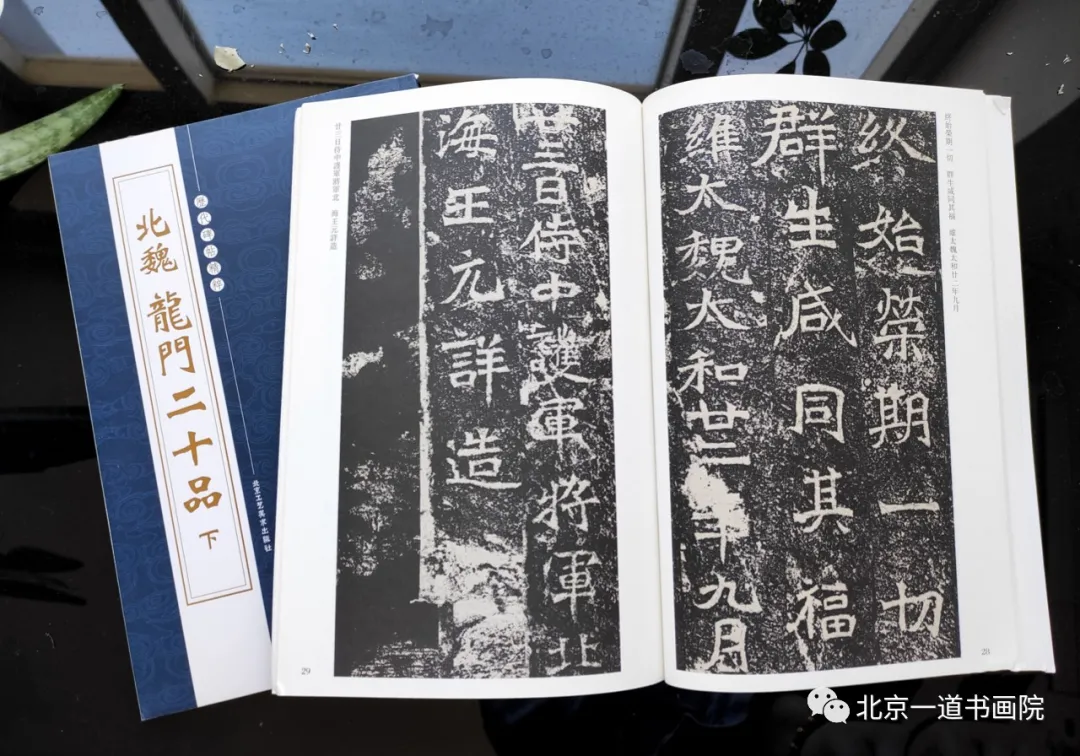 歷代碑帖精粹
北魏 龍門二十品 下
北京工艺美术出版社
终始榮期一切
群生咸同其福
維太魏太和廿二年九月
终始榮期一切 群生咸同其福 維太魏太和廿二年九月
28
廿三日侍中護軍將軍北
海王元詳造
廿三日侍中護軍將軍北 海王元詳造
29
北京一道书画院